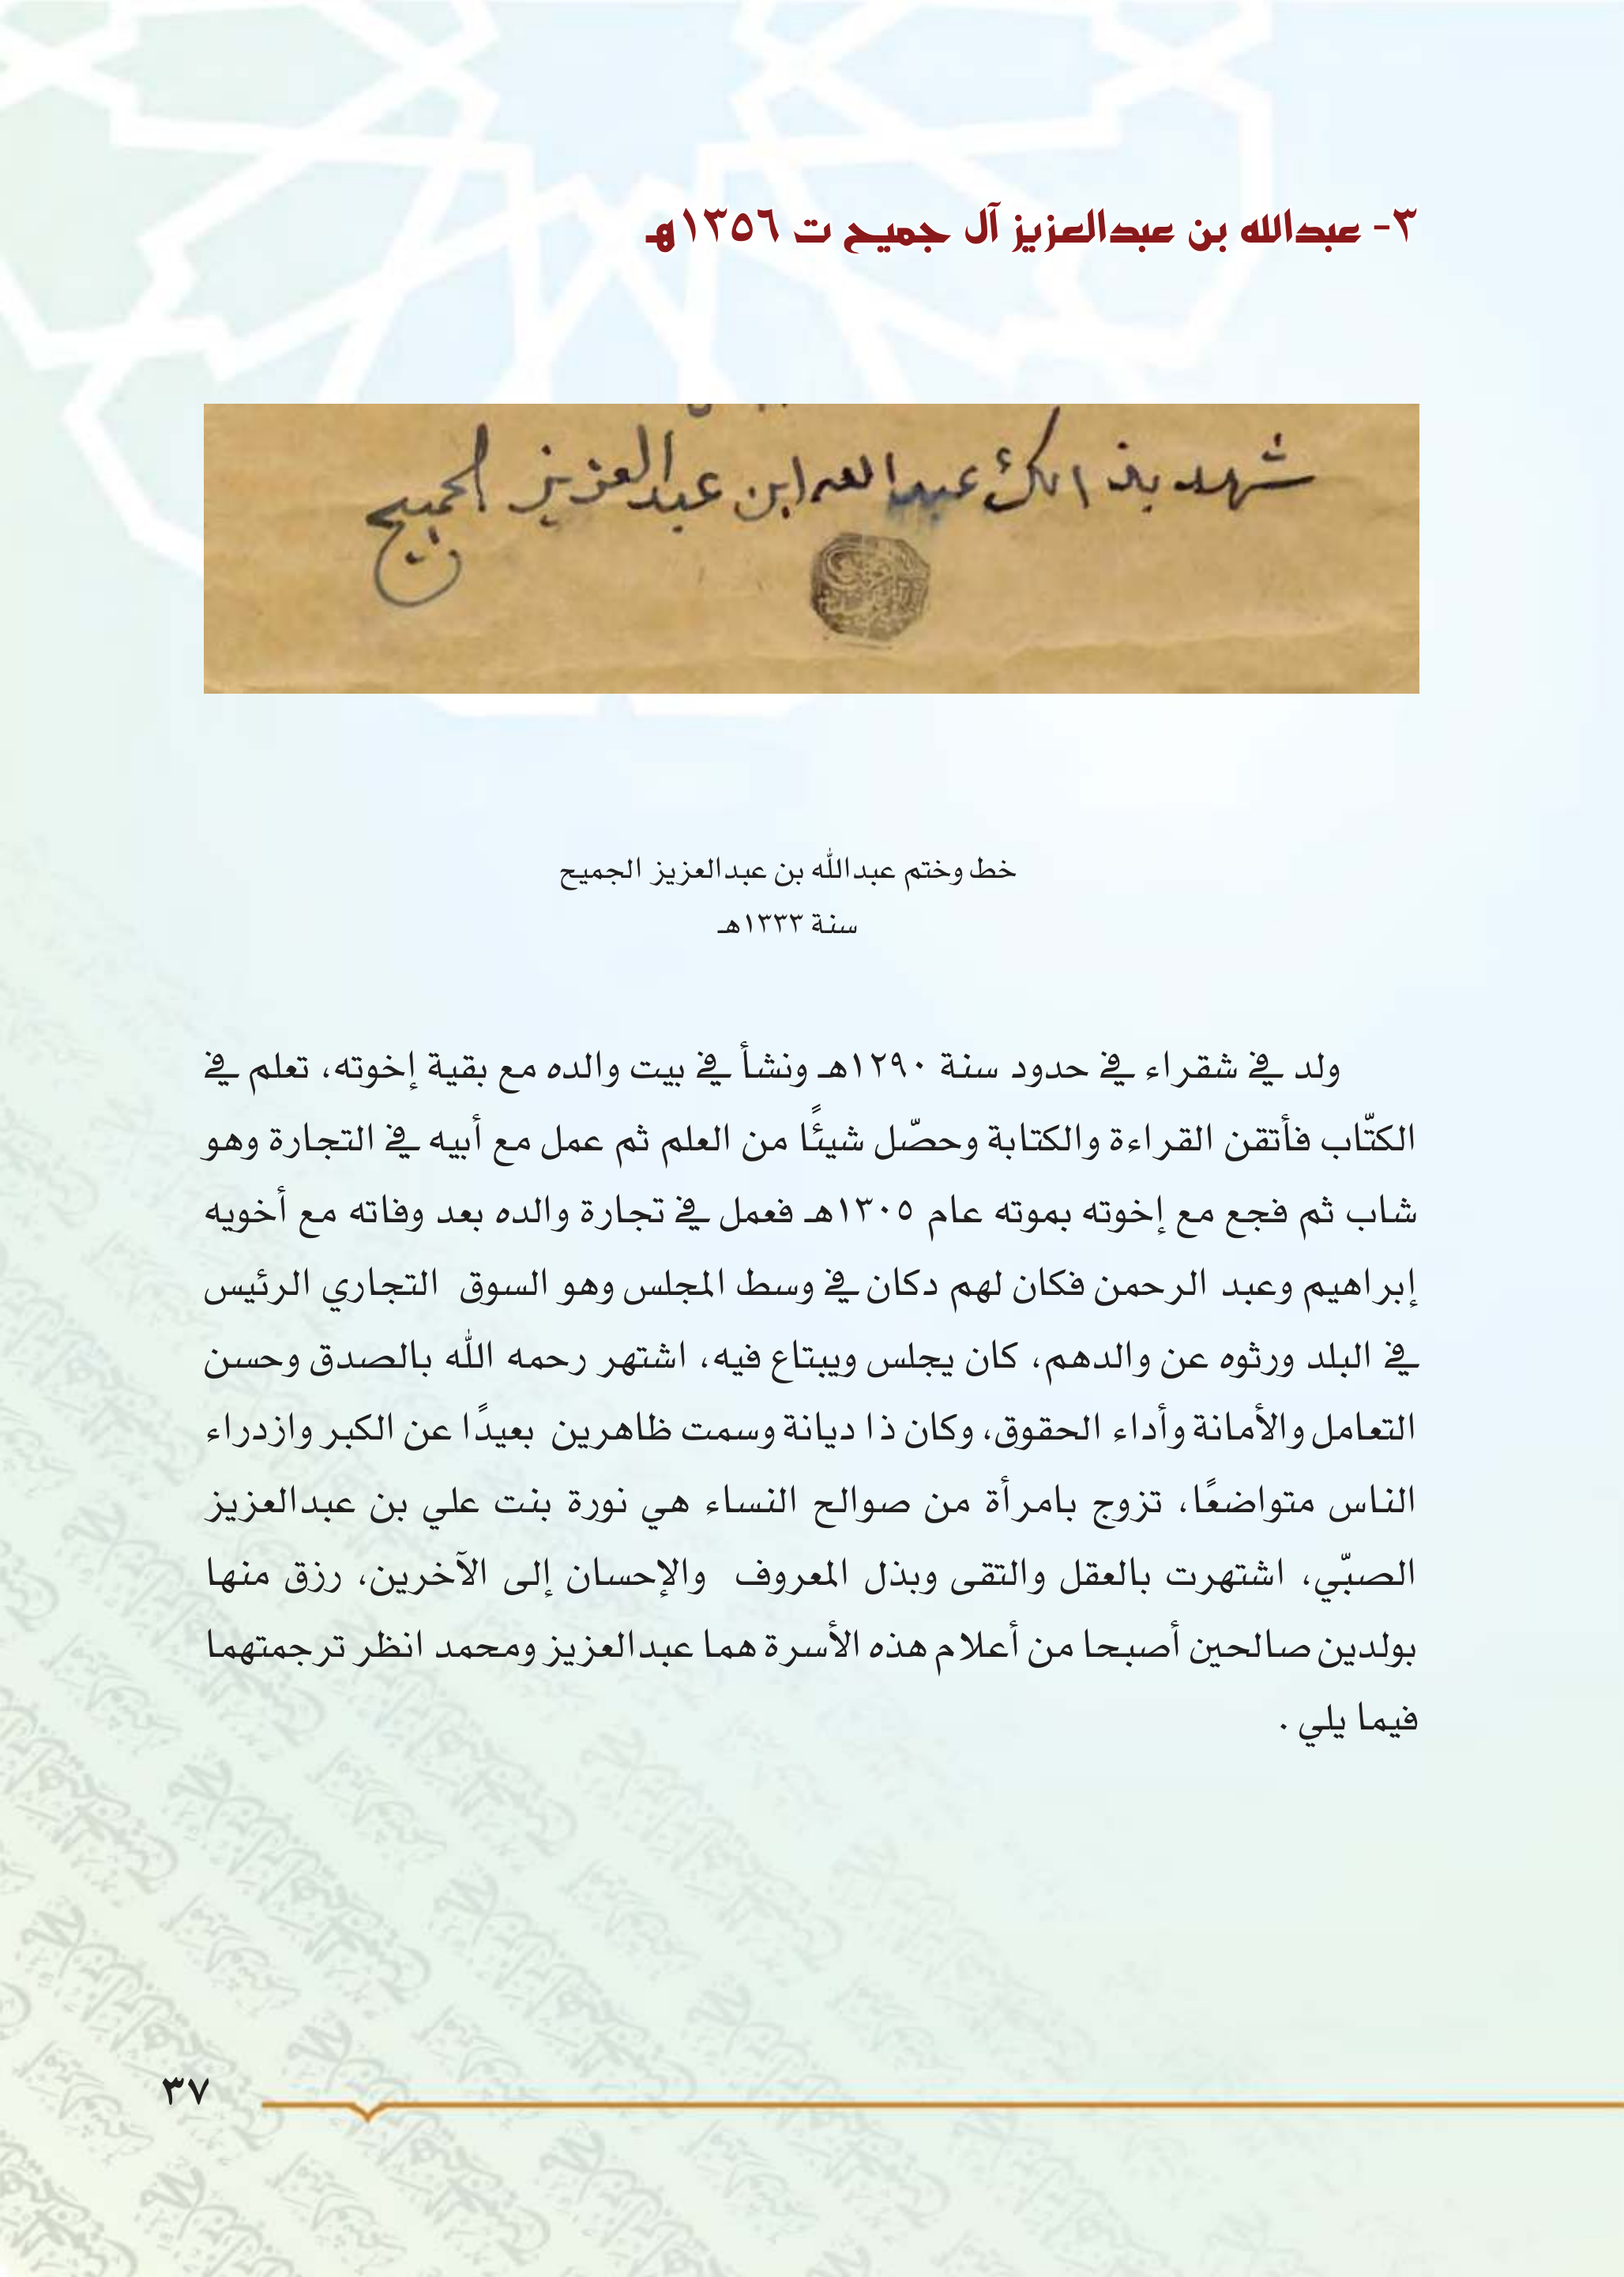 ٣- عبدالله بن عبدالعزيز آل جميح ت ١٣٥٦هـ
شهد بذالك عبدالله ابن عبدالعزيز الجميح
خط وختم عبدالله بن عبدالعزيز الجميح
سنة ١٣٣٣هـ
ولد في شقراء في حدود سنة ١٢٩٠هـ ونشأ في بيت والده مع بقية إخوته، تعلم في
الكتّاب فأتقن القراءة والكتابة وحصّل شيئًا من العلم ثم عمل مع أبيه في التجارة وهو
شاب ثم فجع مع إخوته بموته عام ١٣٠٥هـ فعمل في تجارة والده بعد وفاته مع أخويه
إبراهيم وعبد الرحمن فكان لهم دكان في وسط المجلس وهو السوق التجاري الرئيس
في البلد ورثوه عن والدهم، كان يجلس ويبتاع فيه، اشتهر رحمه الله بالصدق وحسن
التعامل والأمانة وأداء الحقوق، وكان ذا ديانة وسمت ظاهرين بعيدًا عن الكبر وازدراء
الناس متواضعًا، تزوج بامرأة من صوالح النساء هي نورة بنت علي بن عبدالعزيز
الصبّي، اشتهرت بالعقل والتقى وبذل المعروف والإحسان إلى الآخرين، رزق منها
بولدين صالحين أصبحا من أعلام هذه الأسرة هما عبدالعزيز ومحمد انظر ترجمتهما
فيما يلي .
٣٧